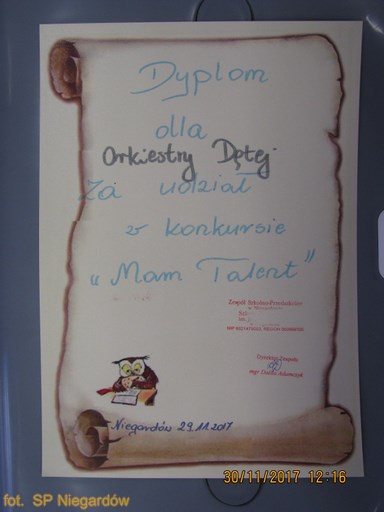 Dyplom
dla
Orkiestry Dętej
Za udział
w konkursie
„Mam Talent"
Zespół Szkolno-Przedszkolny
Dyrektor Zespołu
Niegardów 29.11.2017
30/11/2017 12:16
fot. SP Niegardów